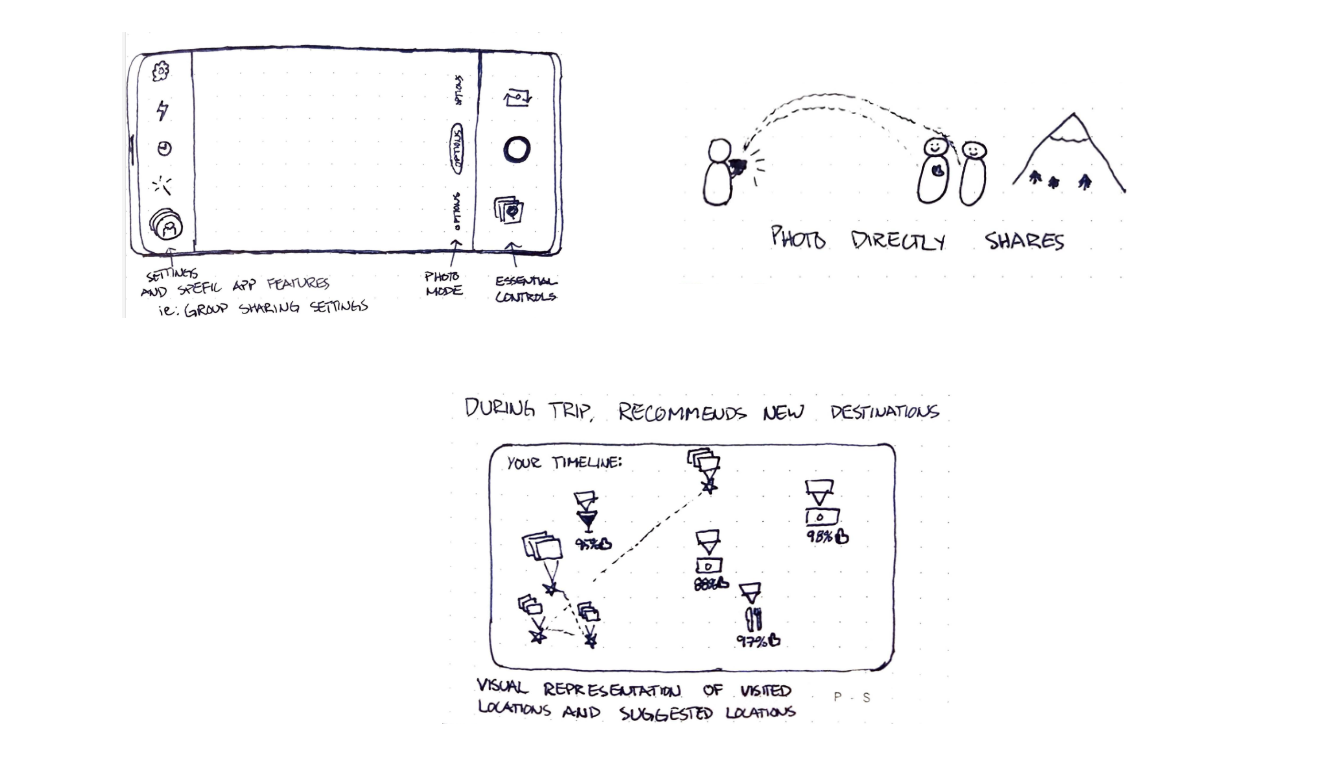 OPTIONS
OPTIONS
OPTIONS
SETTINGS
AND SPEFIC APP FEATURES
ie: GROUP SHARING SETTINGS
PHOTO
MODE
ESSENTIAL
CONTROLS
PHOTO DIRECTLY SHARES
DURING TRIP, RECOMMENDS NEW DESTINATIONS
YOUR TIMELINE:
95%
98%
88%
97%
VISUAL REPRESENTATION OF VISITED
LOCATIONS AND SUGGESTED LOCATIONS
P - S